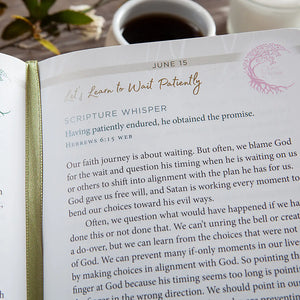 JUNE 15
Let's Learn to Wait Patiently
SCRIPTURE WHISPER
Having patiently endured, he obtained the promise.
HEBREWS 6:15 WEB
Our faith journey is about waiting. But often, we blame God
for the wait and question his timing when he is waiting on us
or others to shift into alignment with the plan he has for us.
God gave us free will, and Satan is working every moment to
bend our choices toward his evil ways.
Often, we question what would have happened if we ha
done this or not done that. We can't unring the bell or creat
a do-over, but we can learn from the choices that were not
of God. We can prevent many if-only moments in our lives
by making choices in alignment with God. So pointing the
finger at God because his timing seems too long is pointin
the finger in the wrong direction. We should point in ou